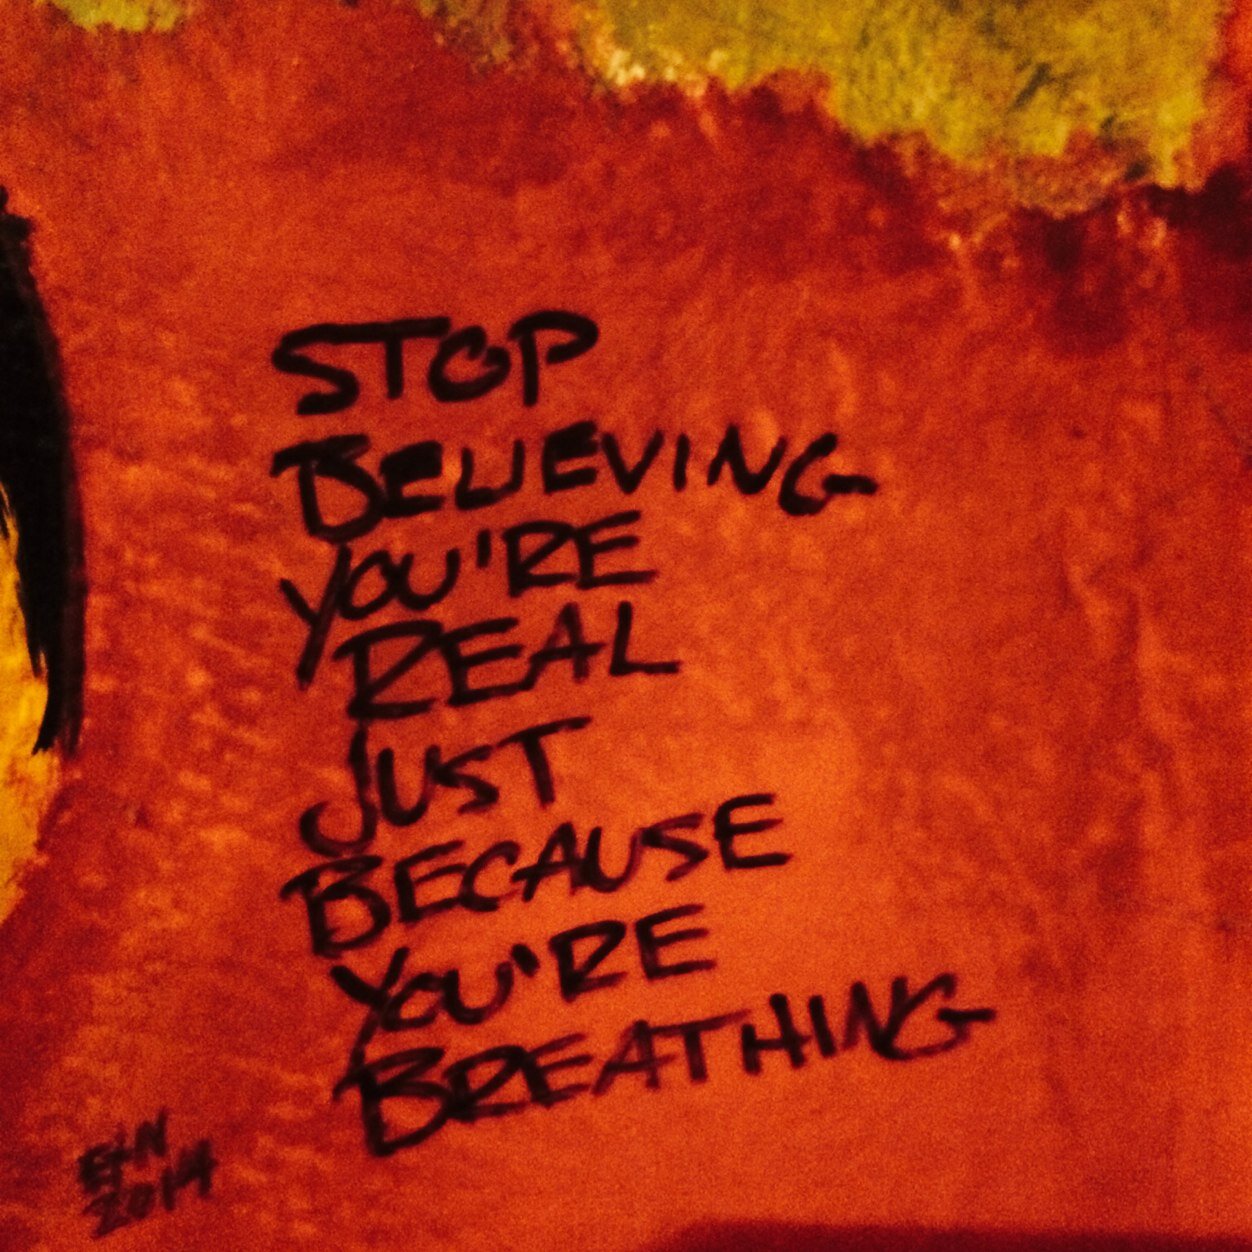 STOP
BELIEVING
YOU'RE
REAL
JUST
BECAUSE
YOU'RE
BREATHING
2014